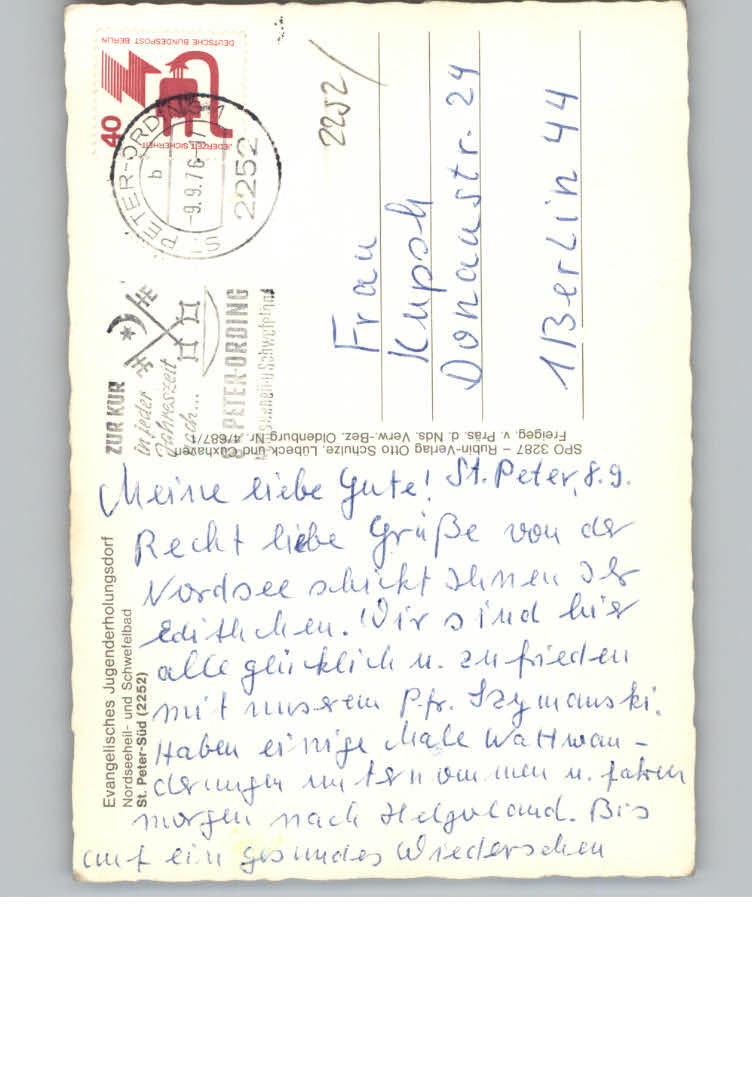 Evangelisches Jugenderholungsdorf
Nordseeheil- und Schwefelbad
St. Peter-Süd (2252)
Meine liebe Gute! St. Peter, 8.9.
Recht liebe Grüße von der
Nordsee schickt Ihnen Ihr
Edithchen. Wir sind hier
alle glücklich u. zufrieden
mit unserem Pfr. Szymanski.
Haben einige Male Wattwan-
derungen unternommen u. fahren
morgen nach Helgoland. Bis
auf ein gesundes Wiedersehen
SPO 3287 – Rubin-Verlag Otto Schulze, Lübeck und Cuxhaven
Freigeg. v. Präs. d. Nds. Verw.-Bez. Oldenburg Nr. 47687/1
ZUR KUR
in jeder
Jahreszeit
nach...
ST. PETER-ORDING
ST. PETER-ORDING 1
b
-9.9.76-17
2252
DEUTSCHE BUNDESPOST BERLIN
40
JEDERZEIT SICHERHEIT
2252/
Frau
Kupsch
Donaustr. 24
1 Berlin 44